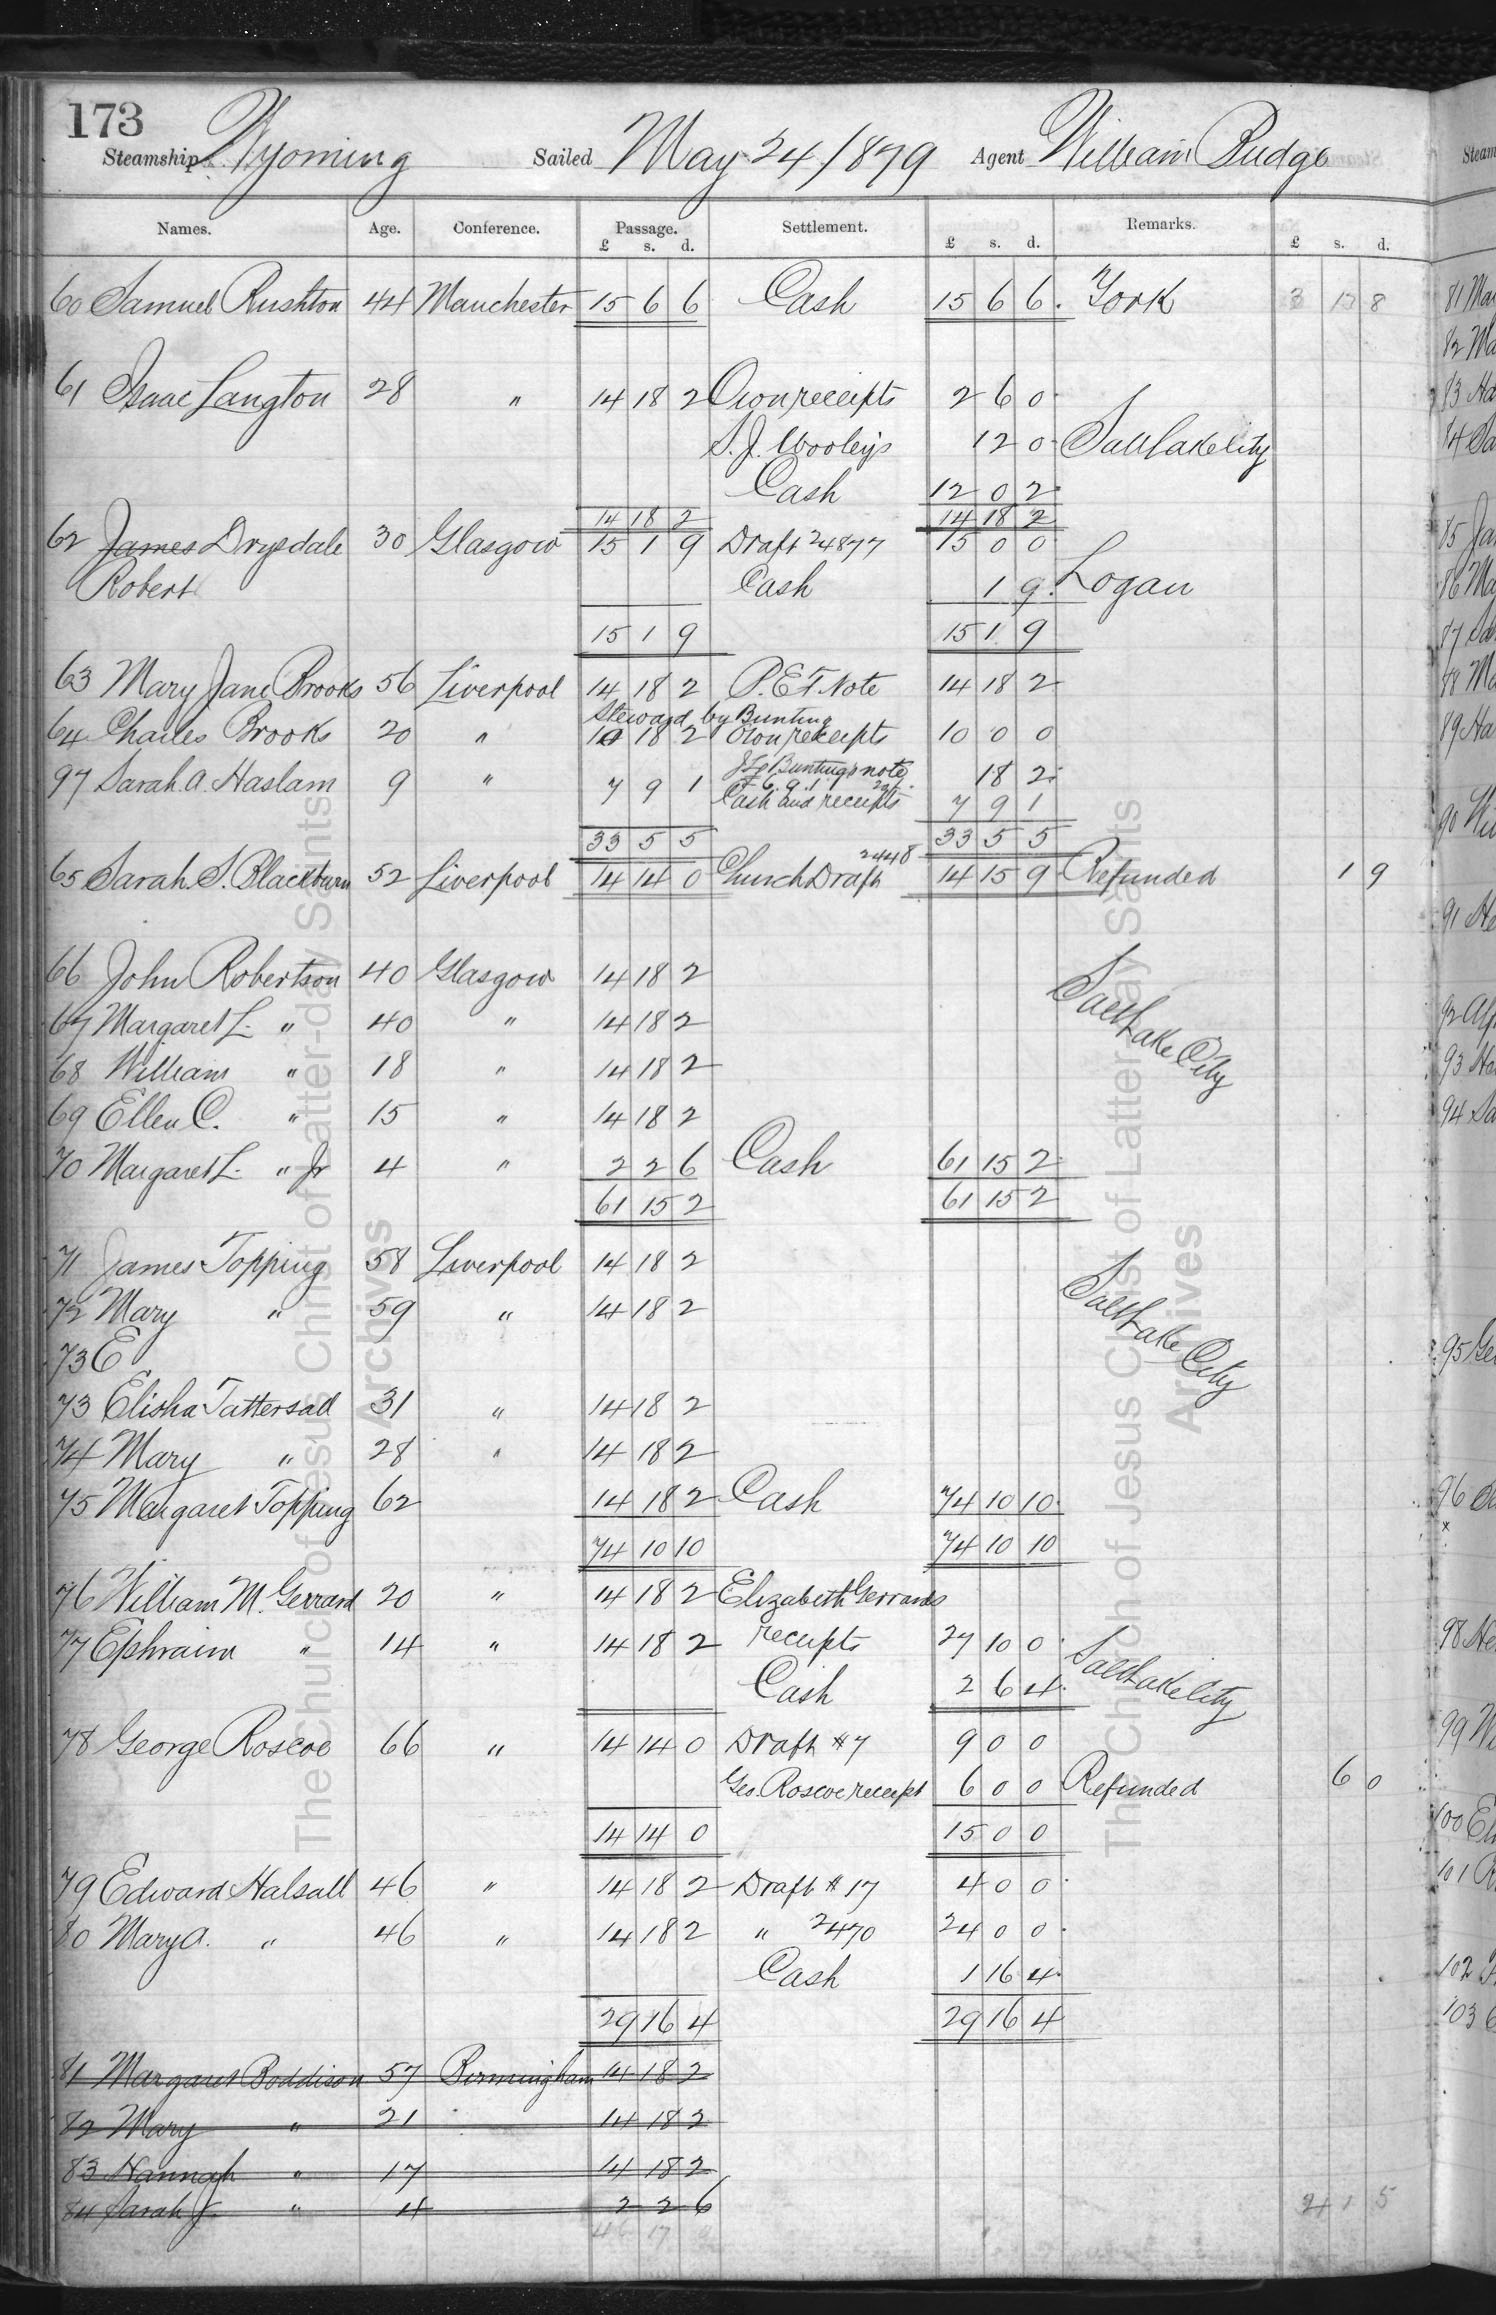 173
Steamship Wyoming Sailed May 24/1879 Agent William Budge
Names. Age. Conference. Passage. Settlement. Remarks.
£ s. d. £ s. d. £ s. d.
60 Samuel Rushton 44 Manchester 15 6 6 Cash 15 6 6 York 3 17 8
61 Isaac Langton 28 " 14 18 2 Own receipts 2 6 0
S. J. Wooley's 12 0 Salt Lake City
Cash 12 0 2
14 18 2 14 18 2
62 James Drysdale 30 Glasgow 15 1 9 Draft 24877 15 0 0
Robert Cash 1 9 Logan
15 1 9 15 1 9
63 Mary Jane Brooks 56 Liverpool 14 18 2 P.E.F. Note 14 18 2
Steward by Bunting
64 Charles Brooks 20 " 10 18 2 Own receipts 10 0 0
J L Bunting's note 18 2
97 Sarah A. Haslam 9 " 7 9 1 £6.9.1
Cash and receipts 7 9 1
33 5 5 33 5 5
65 Sarah S. Blackburn 52 Liverpool 14 14 0 Church Draft 2448 14 15 9 Refunded 1 9
66 John Robertson 40 Glasgow 14 18 2
67 Margaret L. " 40 " 14 18 2 Salt Lake City
68 William " 18 " 14 18 2
69 Ellen C. " 15 " 14 18 2
70 Margaret L. " Jr 4 " 2 2 6 Cash 61 15 2
61 15 2 61 15 2
71 James Topping 58 Liverpool 14 18 2
72 Mary " 59 " 14 18 2 Salt Lake City
73 E
73 Elisha Tattersall 31 " 14 18 2
74 Mary " 28 " 14 18 2
75 Margaret Topping 62 14 18 2 Cash 74 10 10
74 10 10 74 10 10
76 William M. Gerrard 20 " 14 18 2 Elizabeth Gerrards
77 Ephraim " 14 " 14 18 2 receipts 27 10 0
Cash 2 6 4 Salt Lake City
78 George Roscoe 66 " 14 14 0 Draft #7 9 0 0
Geo. Roscoe receipt 6 0 0 Refunded 6 0
14 14 0 15 0 0
79 Edward Halsall 46 " 14 18 2 Draft #17 4 0 0
80 Mary A. " 46 " 14 18 2 " 2470 24 0 0
Cash 1 16 4
29 16 4 29 16 4
81 Margaret Boddison 57 Birmingham 14 18 2
82 Mary " 21 14 18 2
83 Hannah " 17 14 18 2
84 Sarah J. " 4 2 2 6
46 17
4 1 5
The Church of Jesus Christ of Latter-day Saints
Archives
The Church of Jesus Christ of Latter-day Saints
Archives